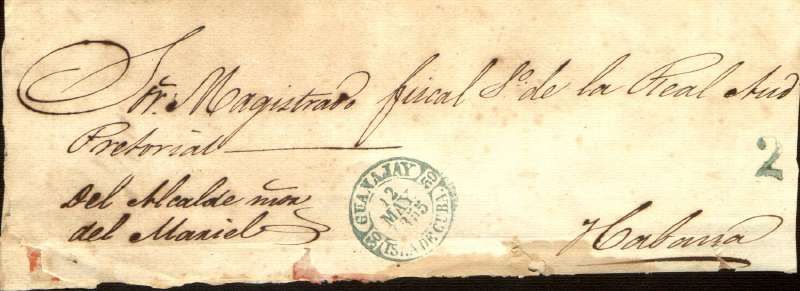 Sor. Magistrado fiscal 1º de la Real Aud
Pretorial
2
Del Alcalde mor
del Mariel
GUANAJAY
12
MAY
ISLA DE CUBA
Habana